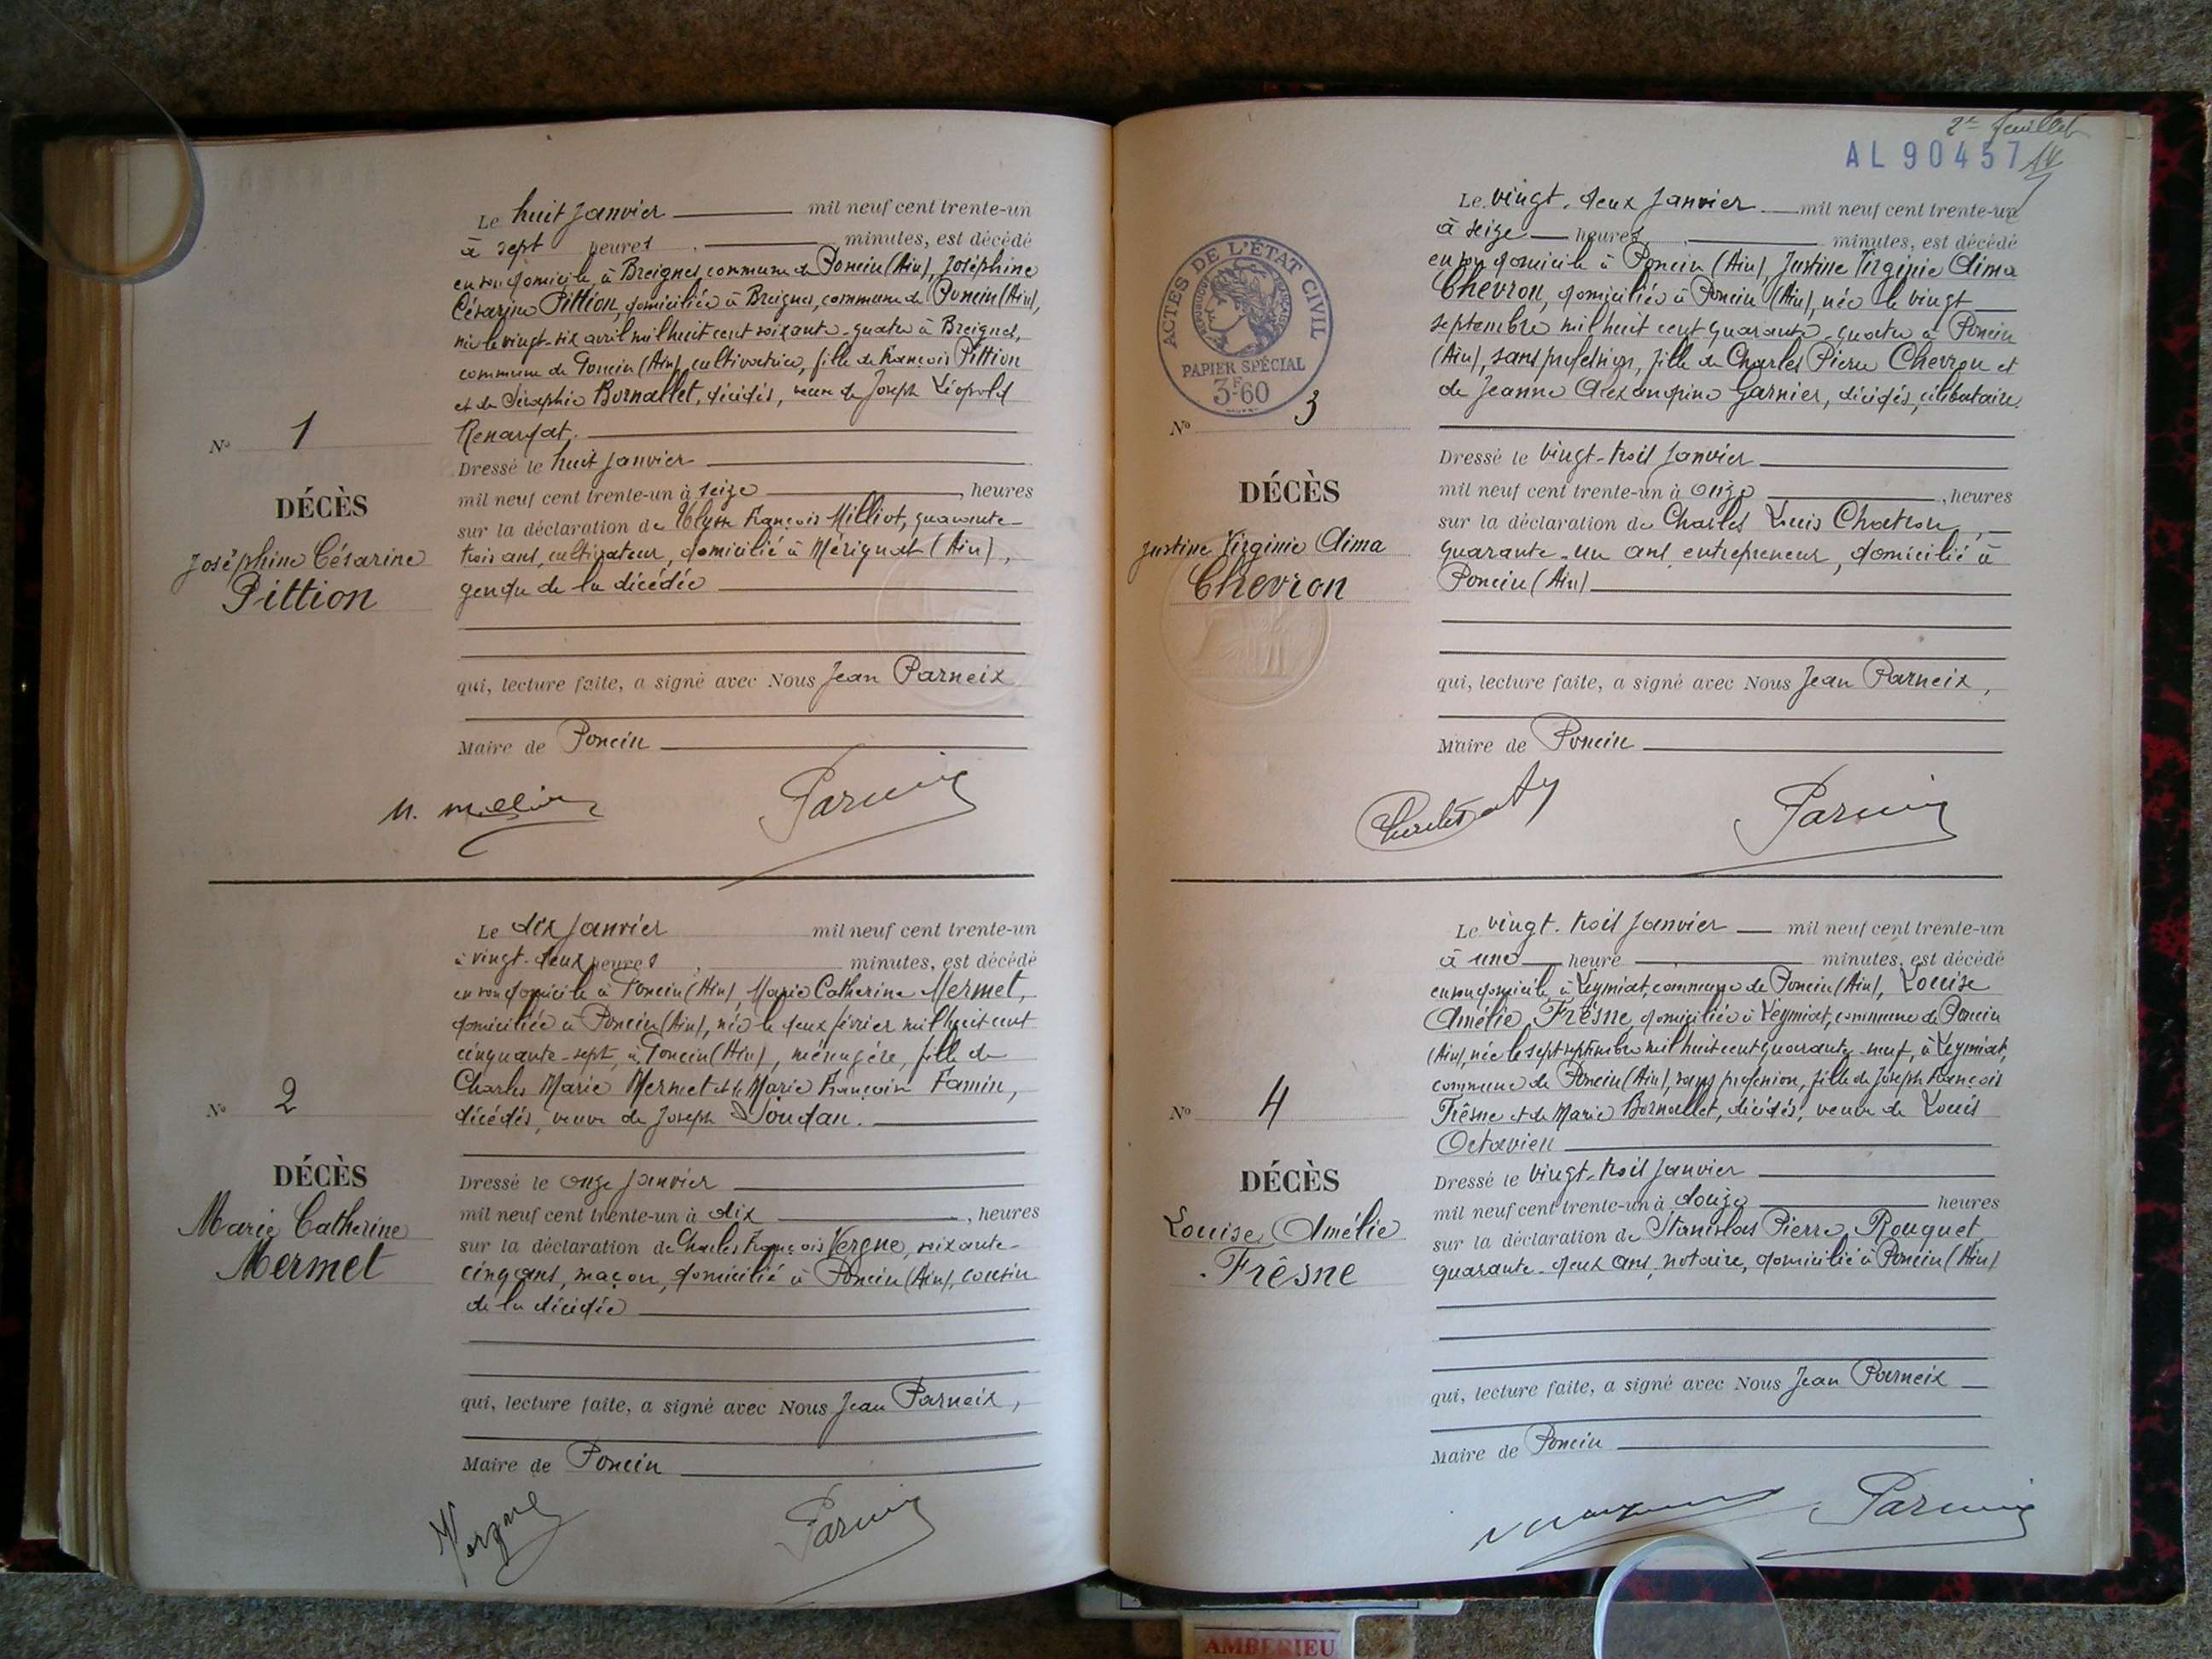 Le huit janvier mil neuf cent trente-un
à sept heures, minutes, est décédé
en son domicile, à Breignes, commune de Poncin (Ain), Joséphine
Césarine Pittion, domiciliée à Breignes, commune de Poncin (Ain),
née le vingt-six avril mil huit cent soixante-quatre à Breignes,
commune de Poncin (Ain), cultivatrice, fille de François Pittion
et de Séraphie Bornallet, décédés, veuve de Joseph Léopold
Renardat.
N° 1
Dressé le huit janvier
mil neuf cent trente-un à seize, heures
DÉCÈS
sur la déclaration de Ulysse François Milliot, quarante-
trois ans, cultivateur, domicilié à Mérignat (Ain),
Joséphine Césarine
gendre de la décédée
Pittion
qui, lecture faite, a signé avec Nous Jean Parneix
Maire de Poncin
Le dix janvier mil neuf cent trente-un
à vingt-deux heures, minutes, est décédé
en son domicile à Poncin (Ain), Marie Catherine Mermet,
domiciliée à Poncin (Ain), née le deux février mil huit cent
cinquante-sept, à Poncin (Ain), ménagère, fille de
Charles Marie Mermet et de Marie Françoise Famin,
décédés, veuve de Joseph Soudan.
N° 2
DÉCÈS
Dressé le onze janvier
mil neuf cent trente-un à dix, heures
Marie Catherine
sur la déclaration de Charles François Vergne, soixante-
Mermet
cinq ans, maçon, domicilié à Poncin (Ain), cousin
de la décédée
qui, lecture faite, a signé avec Nous Jean Parneix,
Maire de Poncin
Vergne
2e feuillet
AL 90457
Le vingt-deux janvier mil neuf cent trente-un
à seize heures, minutes, est décédé
en son domicile à Poncin (Ain), Justine Virginie Aima
Chevron, domiciliée à Poncin (Ain), née le vingt
septembre mil huit cent quarante-quatre à Poncin
(Ain), sans profession, fille de Charles Pierre Chevron et
de Jeanne Alexandrine Garnier, décédés, célibataire.
ACTES DE L'ÉTAT CIVIL
RÉPUBLIQUE FRANÇAISE
PAPIER SPÉCIAL
3F60
N° 3
Dressé le vingt-trois janvier
DÉCÈS
mil neuf cent trente-un à onze, heures
sur la déclaration de Charles Louis
Justine Virginie Aima
quarante-un ans, entrepreneur, domicilié à
Chevron
Poncin (Ain)
qui, lecture faite, a signé avec Nous Jean Parneix,
Maire de Poncin
Le vingt-trois janvier mil neuf cent trente-un
à une heure minutes, est décédé
en son domicile, à Leymiat, commune de Poncin (Ain), Louise
Amélie Frêsne, domiciliée à Leymiat, commune de Poncin
(Ain), née le sept septembre mil huit cent quarante-neuf, à Leymiat,
commune de Poncin (Ain), sans profession, fille de Joseph François
Frêsne et de Marie Bornallet, décédés, veuve de Louis
Octavien
N° 4
DÉCÈS
Dressé le vingt-trois janvier
mil neuf cent trente-un à douze heures
Louise Amélie
sur la déclaration de Stanislas Pierre Rouquet,
Frêsne
quarante-deux ans, notaire, domicilié à Poncin (Ain)
qui, lecture faite, a signé avec Nous Jean Parneix
Maire de Poncin
AMBERIEU